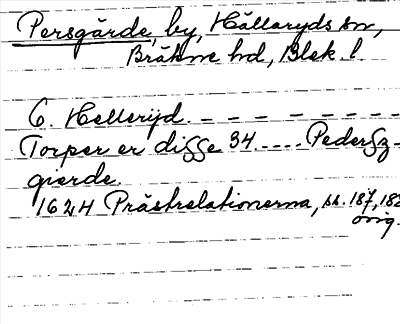 Persgärde, by, Hällaryds sn,
Bräkne hd, Blek. l.
6. Hellerijd. – – – – – – – –
Torper er disse 34. .... Pedersz-
gierde
1624 Prästrelationerna, s. 187, 182
orig.